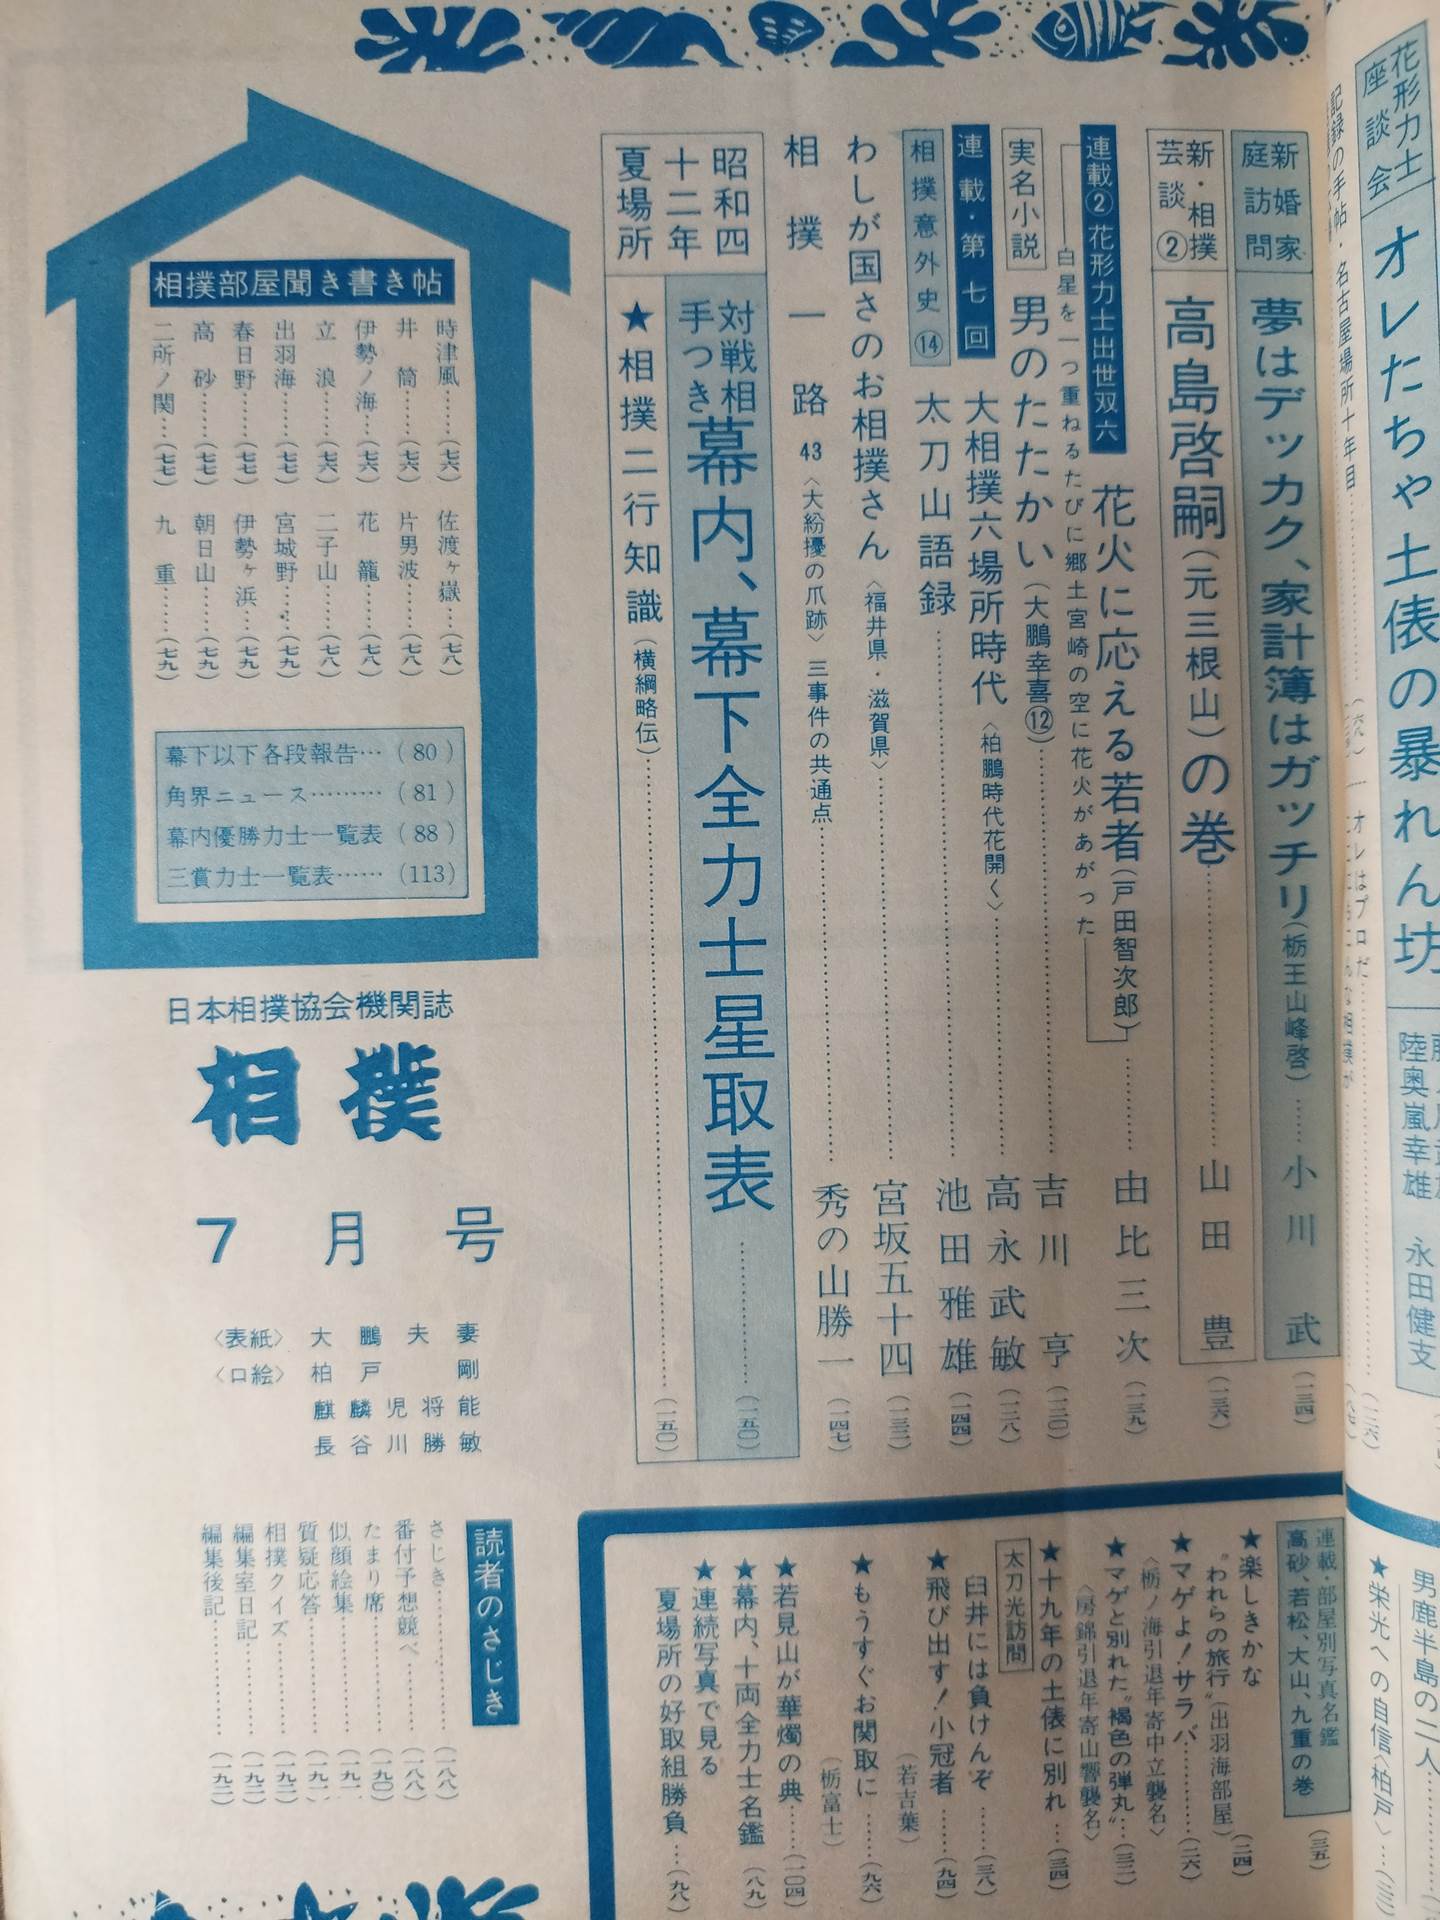 花形力士
座談会
オレたちゃ土俵の暴れん坊
陸奥嵐幸雄
永田健支
記録の手帖・名古屋場所十年目
新婚家
庭訪問
夢はデッカク、家計簿はガッチリ(栃王山峰啓)……小川 武(一三四)
新・相撲
芸談②
高島啓嗣(元三根山)の巻……山田 豊(一三六)
連載②花形力士出世双六
花火に応える若者(戸田智次郎)……由比三次(一三九)
白星を一つ重ねるたびに郷土宮崎の空に花火があがった
実名小説
男のたたかい(大鵬幸喜⑫)……吉川 亨(一二〇)
連載・第七回
大相撲六場所時代〈柏鵬時代花開く〉……高永武敏(一二八)
相撲意外史⑭
太刀山語録……池田雅雄(一四四)
わしが国さのお相撲さん〈福井県・滋賀県〉……宮坂五十四(一三二)
相撲一路 43〈大紛擾の爪跡〉三事件の共通点……秀の山勝一(一四七)
昭和四
十二年
夏場所
対戦相
手つき
幕内、幕下全力士星取表……(一五〇)
★相撲二行知識(横綱略伝)……(一五〇)
相撲部屋聞き書き帖
時津風……(七六)
井筒……(七六)
伊勢ノ海……(七六)
立浪……(七六)
出羽海……(七七)
春日野……(七七)
高砂……(七七)
二所ノ関……(七七)
佐渡ヶ嶽……(七八)
片男波……(七八)
花籠……(七八)
二子山……(七八)
宮城野……(七九)
伊勢ヶ浜……(七九)
朝日山……(七九)
九重……(七九)
幕下以下各段報告…(80)
角界ニュース………(81)
幕内優勝力士一覧表(88)
三賞力士一覧表……(113)
日本相撲協会機関誌
相撲
7月号
〈表紙〉大鵬夫妻
〈口絵〉柏戸 剛
麒麟児将能
長谷川勝敏
読者のさじき
さじき……(一八八)
番付予想競べ……(一八八)
たまり席……(一九〇)
似顔絵集……
質疑応答……
相撲クイズ……(一九二)
編集室日記……(一九二)
編集後記……(一九二)
連載・部屋別写真名鑑
高砂、若松、大山、九重の巻(三五)
★楽しきかな
“われらの旅行”(出羽海部屋)(二四)
★マゲよ!サラバ……(二六)
〈栃ノ海引退年寄中立襲名〉
★マゲと別れた“褐色の弾丸”…(三二)
〈房錦引退年寄山響襲名〉
★十九年の土俵に別れ…(三四)
太刀光訪問
臼井には負けんぞ……(三八)
★飛び出す!小冠者……(九四)
(若吉葉)
★もうすぐお関取に……(九六)
(栃富士)
★若見山が華燭の典……(一〇四)
★幕内、十両全力士名鑑(八九)
★連続写真で見る
夏場所の好取組勝負…(九八)
男鹿半島の二人……
★栄光への自信〈柏戸〉…